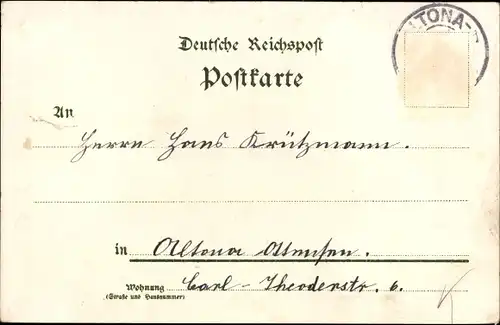 ALTONA-
Deutsche Reichspost
Postkarte
An
Herrn Hans Krützmann.
in Altona Ottensen.
Wohnung Carl-Theoderstr. 6.
(Straße und Hausnummer)